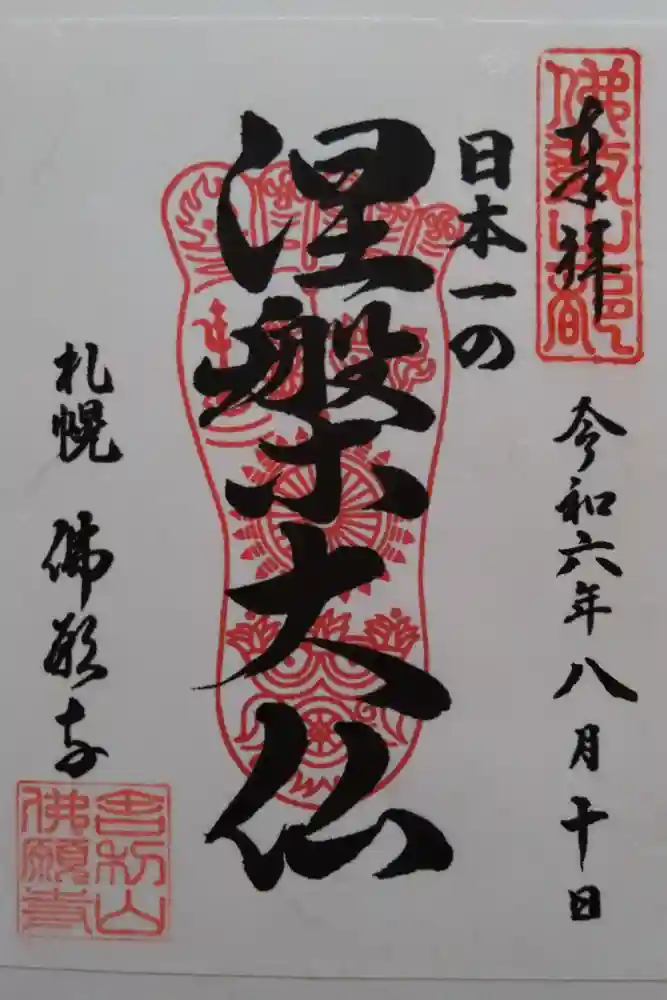 奉拝
令和六年八月十日
日本一の
涅槃大仏
札幌 佛願寺
舎利山
佛願寺